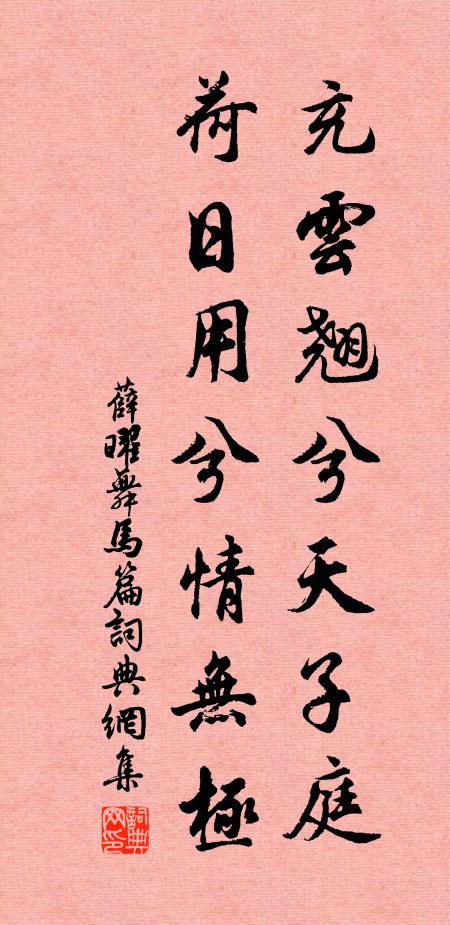 充雲翹兮天子庭
荷日用兮情無極
薛曜舞馬篇詞典網集
詞典網印